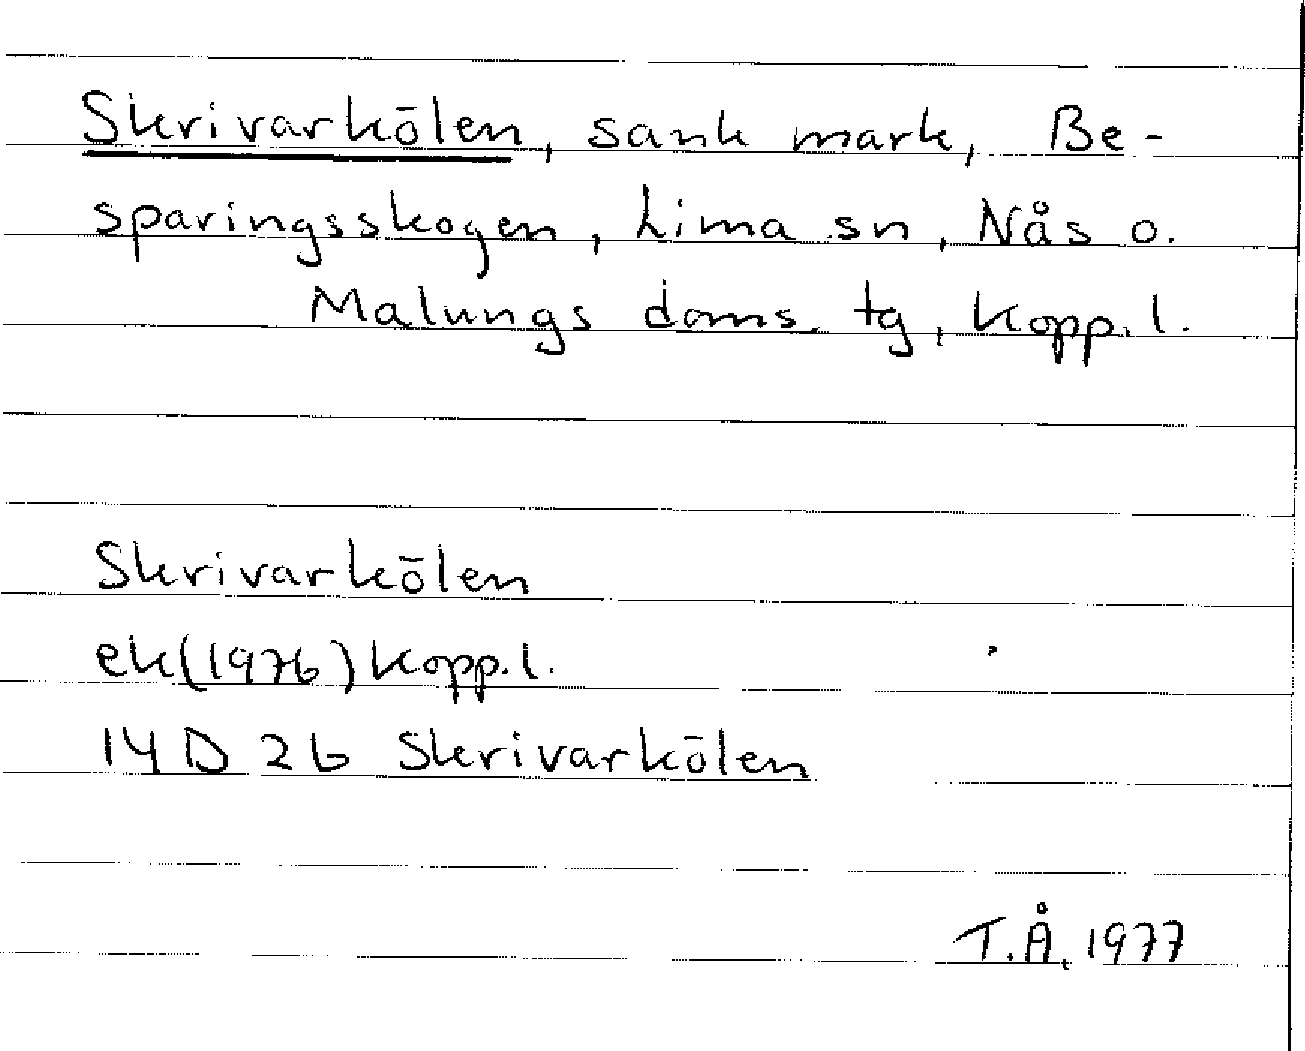 Skrivarkölen, sank mark, Be-
sparingsskogen, Lima sn, Nås o.
Malungs doms. tg, Kopp. l.
Skrivarkölen
ek(1976) Kopp. l.
14D 2b Skrivarkölen
T.Å, 1977